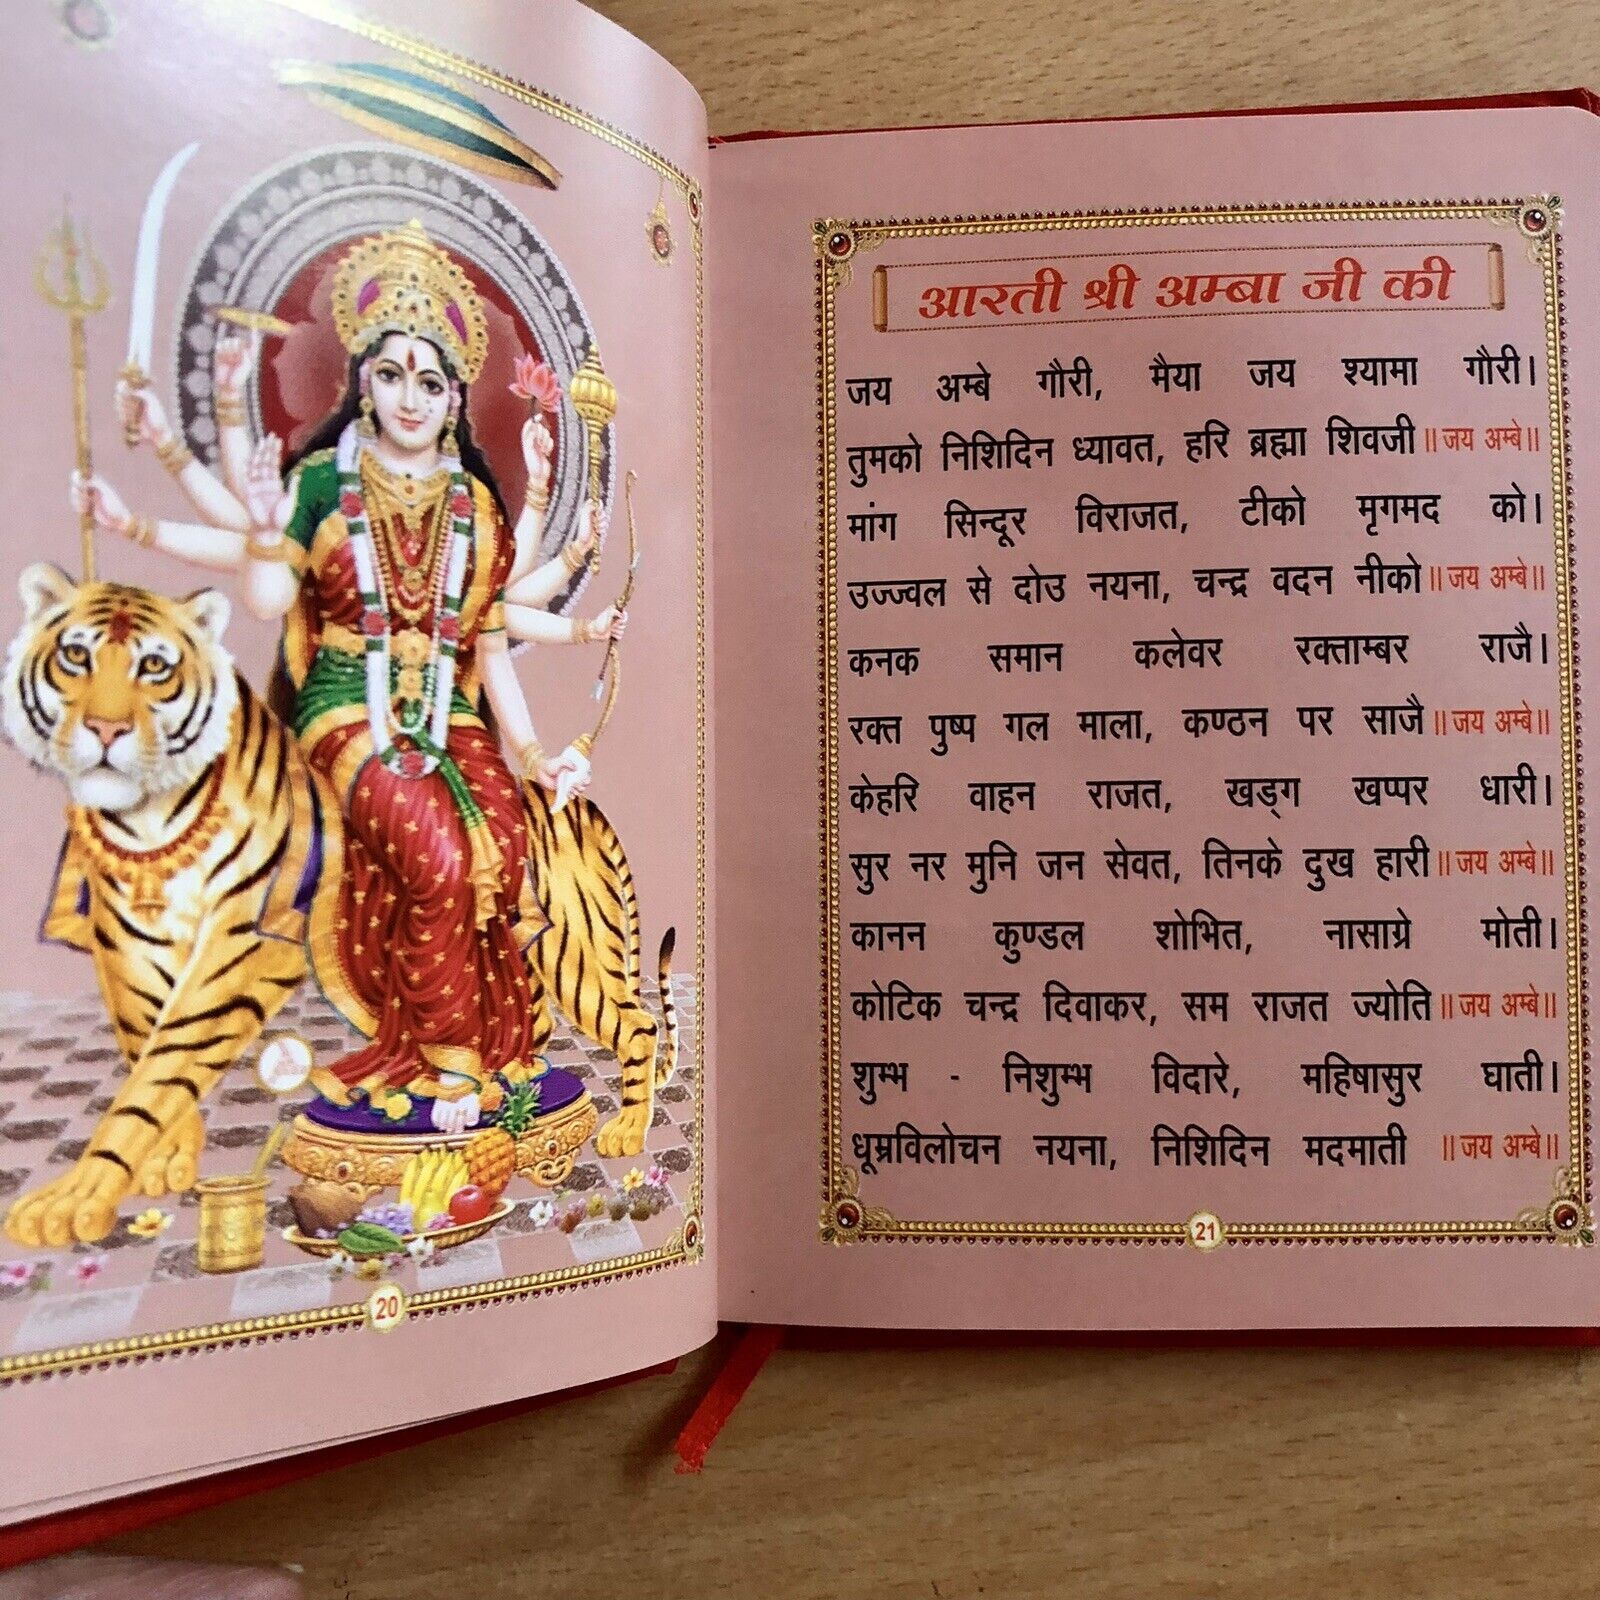 20
आरती श्री अम्बा जी की
जय अम्बे गौरी, मैया जय श्यामा गौरी।
तुमको निशिदिन ध्यावत, हरि ब्रह्मा शिवजी॥जय अम्बे॥
मांग सिन्दूर विराजत, टीको मृगमद को।
उज्ज्वल से दोउ नयना, चन्द्र वदन नीको॥जय अम्बे॥
कनक समान कलेवर रक्ताम्बर राजै।
रक्त पुष्प गल माला, कण्ठन पर साजै॥जय अम्बे॥
केहरि वाहन राजत, खड्ग खप्पर धारी।
सुर नर मुनि जन सेवत, तिनके दुख हारी॥जय अम्बे॥
कानन कुण्डल शोभित, नासाग्रे मोती।
कोटिक चन्द्र दिवाकर, सम राजत ज्योति॥जय अम्बे॥
शुम्भ - निशुम्भ विदारे, महिषासुर घाती।
धूम्रविलोचन नयना, निशिदिन मदमाती ॥जय अम्बे॥
21